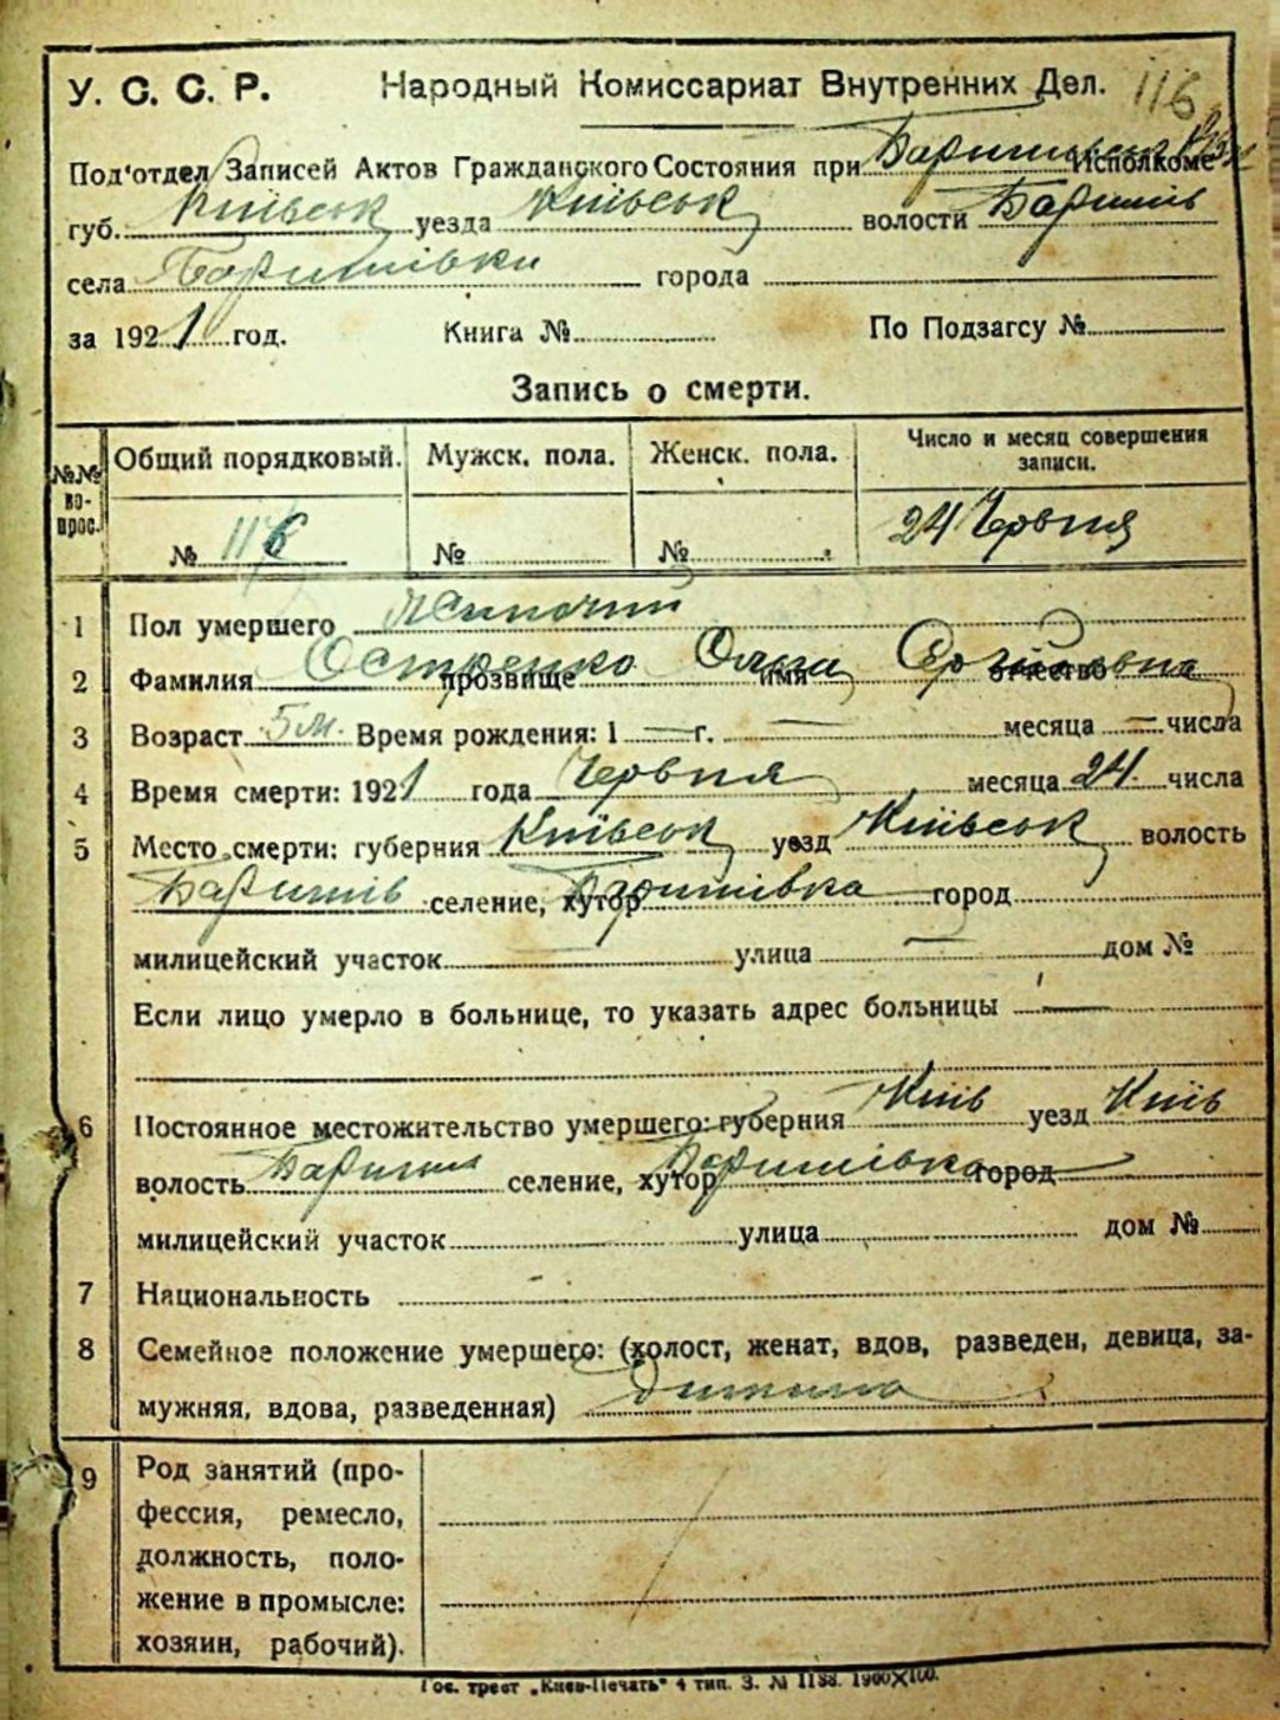 У. С. С. Р. Народный Комиссариат Внутренних Дел. 116
Под'отдел Записей Актов Гражданского Состояния при Исполкоме
губ. Київськ уезда Київськ волости Баришів
села Баришівки города
за 1921 год. Книга № По Подзагсу №
Запись о смерти.
№№ вопрос. Общий порядковый. Мужск. пола. Женск. пола. Число и месяц совершения записи.
№ 116 № № 24 Червня
1 Пол умершего Жиночий
2 Фамилия прозвище Остренко имя Ольга отчество Сергіївна
3 Возраст 5 м. Время рождения: 1 — г. — месяца — числа
4 Время смерти: 1921 года Червня месяца 24 числа
5 Место смерти: губерния Київськ уезд Київськ волость
Баришів селение, хутор Баришівка город
милицейский участок — улица — дом №
Если лицо умерло в больнице, то указать адрес больницы —
6 Постоянное местожительство умершего: губерния Київ уезд Київ
волость селение, хутор Баришівка город
милицейский участок улица дом №
7 Национальность -
8 Семейное положение умершего: (холост, женат, вдов, разведен, девица, за-
мужняя, вдова, разведенная) дитина
9 Род занятий (про-
фессия, ремесло,
должность, поло-
жение в промысле:
хозяин, рабочий).
Гос. трест „Киев-Печать" 4 тип. З. № 1188. 1900×100.